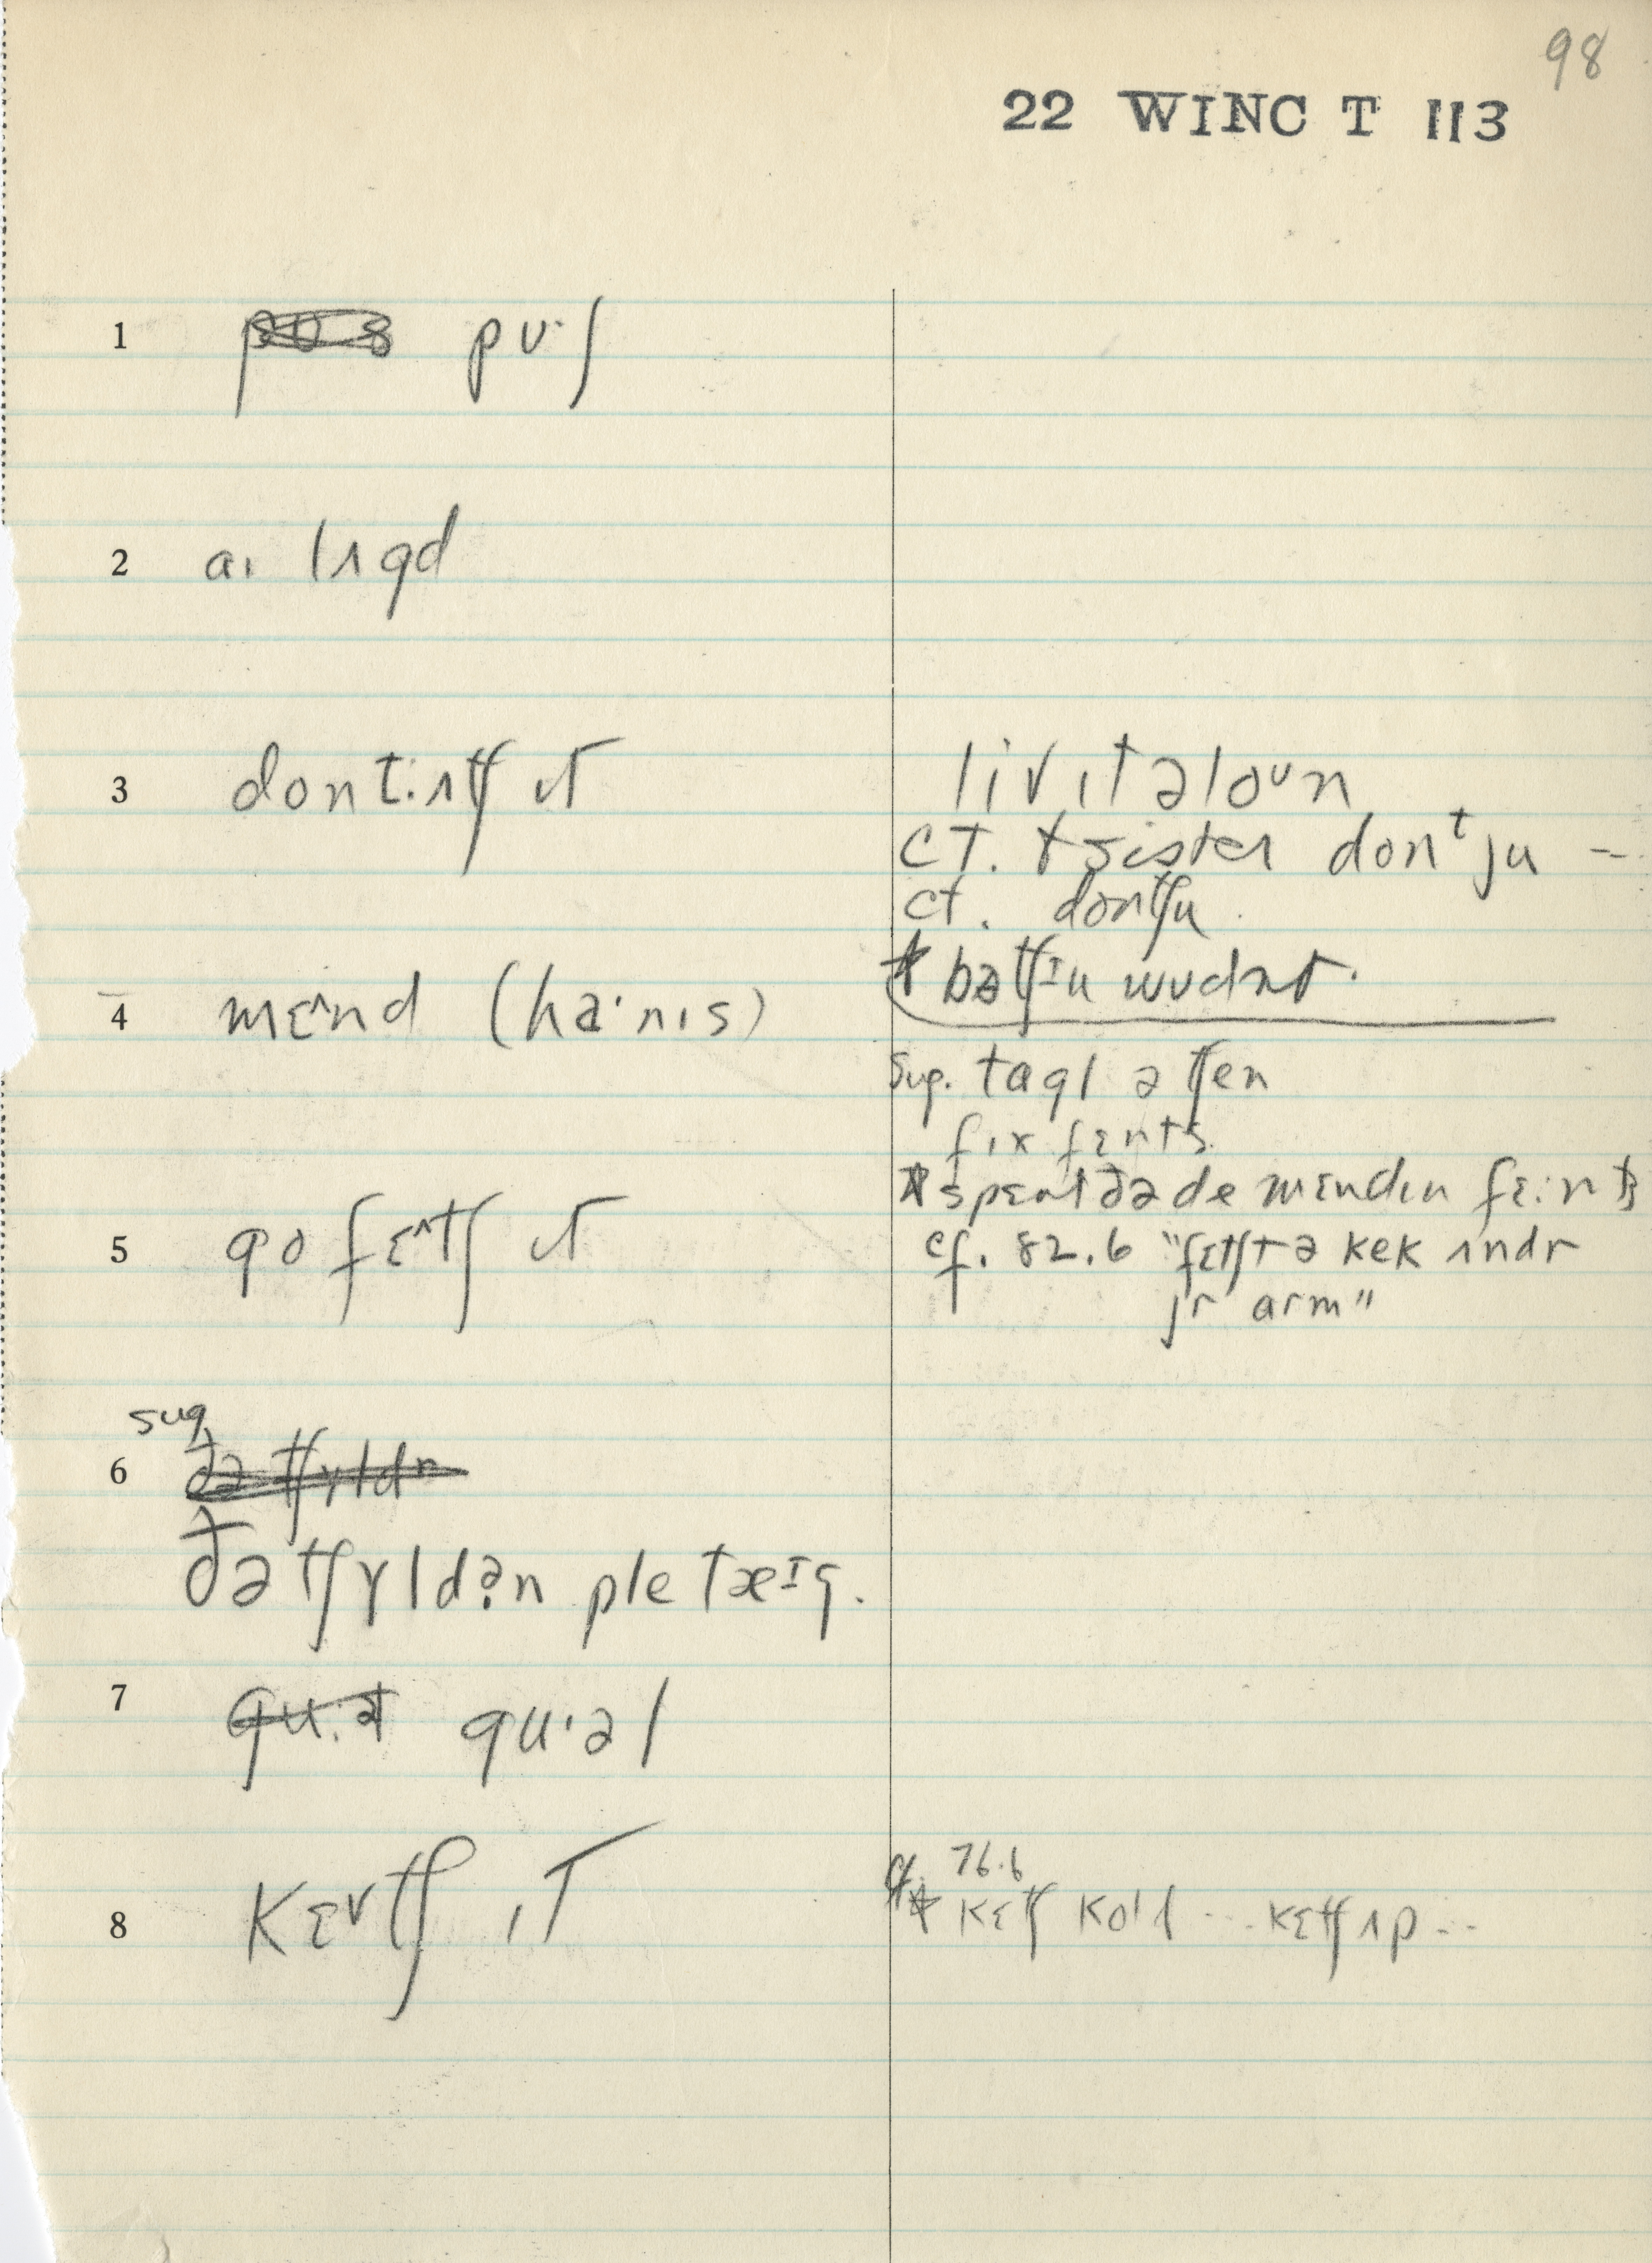 98
22 WINC T 113
1 pʊ·ʃ
2 aɪ lʌgd
3 dont·ʌtʃ ɪt
livɪt əloᵘn
ct. sister donᵗ ju –
ct. dontʃu
* bətʃɪu wudnt.
4 mɛ^nd (ha·nɪs)
sug. tagl ə tʃen
fɪx fɛnts
* spɛnt ðə de mɛndɪn fɛ:nts
5 go fɛ^tʃ ɪt
cf. 82.6 "fɛtʃt ə kek ʌndr
jr arm"
sug
6 ðə tʃɪldn
ðə tʃɤldən ple tæɪg.
7 gu·ət gu·əl
8 kɛᵛtʃ ɪt
cf. 76.6
* kɛtʃ kold ... kɛtʃ ʌp ...